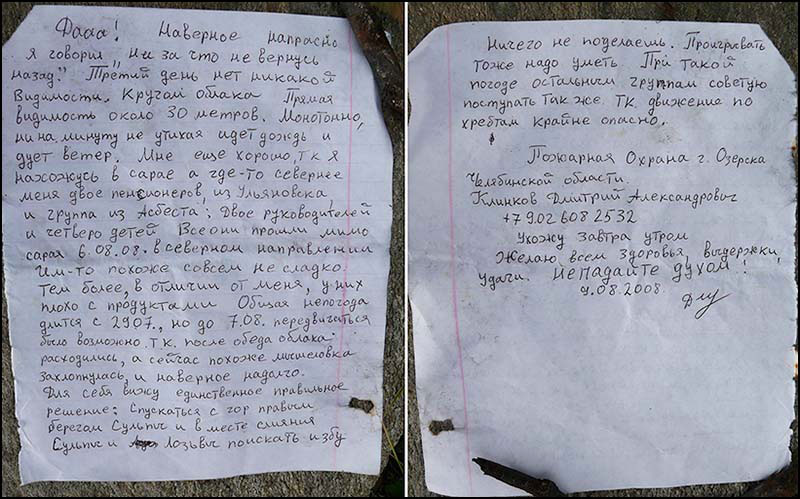 Дааа! Наверное напрасно
я говорил „Ни за что не вернусь
назад!" Третий день нет никакой
Видимости. Кругом облака Прямая
видимость около 30 метров. Монотонно,
ни на минуту не утихая идет дождь и
дует ветер. Мне еще хорошо, т к я
нахожусь в сарае а где-то севернее
меня двое пенсионеров, из Ульяновска,
и группа из Асбеста: Двое руководителей
и четверо детей Все они прошли мимо
сарая 6.08.08. в северном направлении
Им-то похоже совсем не сладко
Тем более, в отличии от меня, у них
плохо с продуктами Общая непогода
длится с 2907., но до 7.08. передвигаться
было возможно т.к. после обеда облака
расходились, а сейчас похоже мышеловка
захлопнулась, и наверное надолго.
Для себя вижу единственное правильное
решение: Спускаться с гор правым
берегом Сульпы и в месте слияния
Сульпы и Лозьвы поискать избу
Ничего не поделаешь. Проигрывать
тоже надо уметь. При такой
погоде остальным группам советую
поступать так же. Т.К. движение по
хребтам крайне опасно.
Пожарная Охрана г. Озерска
Челябинской области.
Клинков Дмитрий Александрович
+7902 608 2532
Ухожу завтра утром
Желаю всем здоровья, выдержки,
удачи. Не падайте духом!
9.08.2008.